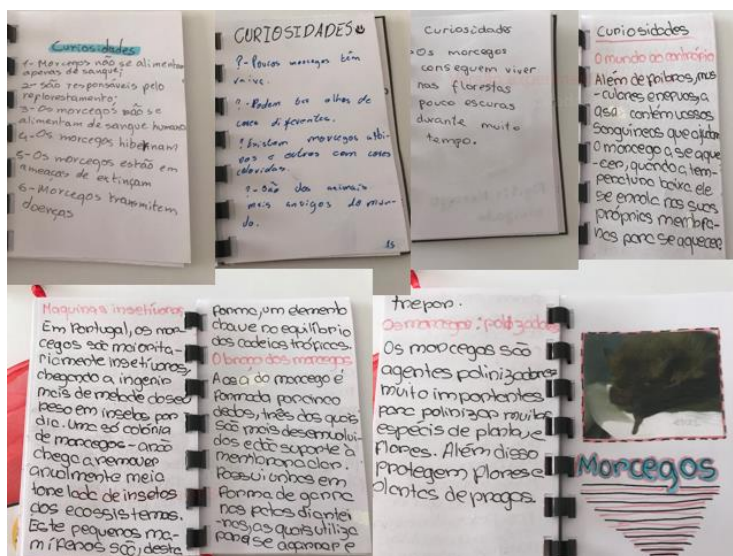 Curiosidades
1- Morcegos não se alimentam
apenas de sangue;
2- são responsáveis pelo
reflorestamento;
3- Os morcegos não se
alimentam de sangue humano
4- Os morcegos hibernam
5- Os morcegos estão em
ameaças de extinçam
6- Morcegos transmitem
doenças
CURIOSIDADES
?- Poucos morcegos têm
raiva.
?- Podem ter olhos de
cores diferentes.
? Existem morcegos albi-
nos e outros com cores
coloridas.
?- São dos animais
mais antigos do mun-
do.
15
Curiosidades
Os morcegos
conseguem viver
nas florestas
pouco escuras
durante muito
tempo.
Curiosidades
O mundo ao contrário
Além de pailbros, mus-
culares e nervos, a
asa contém vossos
sanguíneos que ajudam
o morcego a se aque-
-cer, quando a tem-
peractura baixa ele
se enrola nas suas
próprias membra-
nas para se aquecer
Maquinas insetívoras
Em Portugal, os mor-
cegos são maiorita-
riamente insetívoros,
chegando a ingerir
mais de metade do seu
peso em insetos por
dia. Uma só colónia
de morcegos-anão
chega a remover
anualmente meia
tonelada de insetos
dos ecossistemas.
Este pequenos ma-
míferos são, desta
forma, um elemento
chave no equilíbrio
das cadeias tróficas.
O braço dos morcegos
A asa do morcego é
formada por cinco
dedos, três dos quais
são mais desenvolvi-
dos e dão suporte à
membrana alar.
Possui unhas em
forma de garra
nas patas diantei-
-ras, as quais utiliza
para se agarrar e
trepar.
Os morcegos: polinizadores
Os morcegos são
agentes polinizadores
muito importantes
para polinizar muitas
especis de planta, e
flores. Além disso
protegem flores e
plantas de pragas.
Morcegos